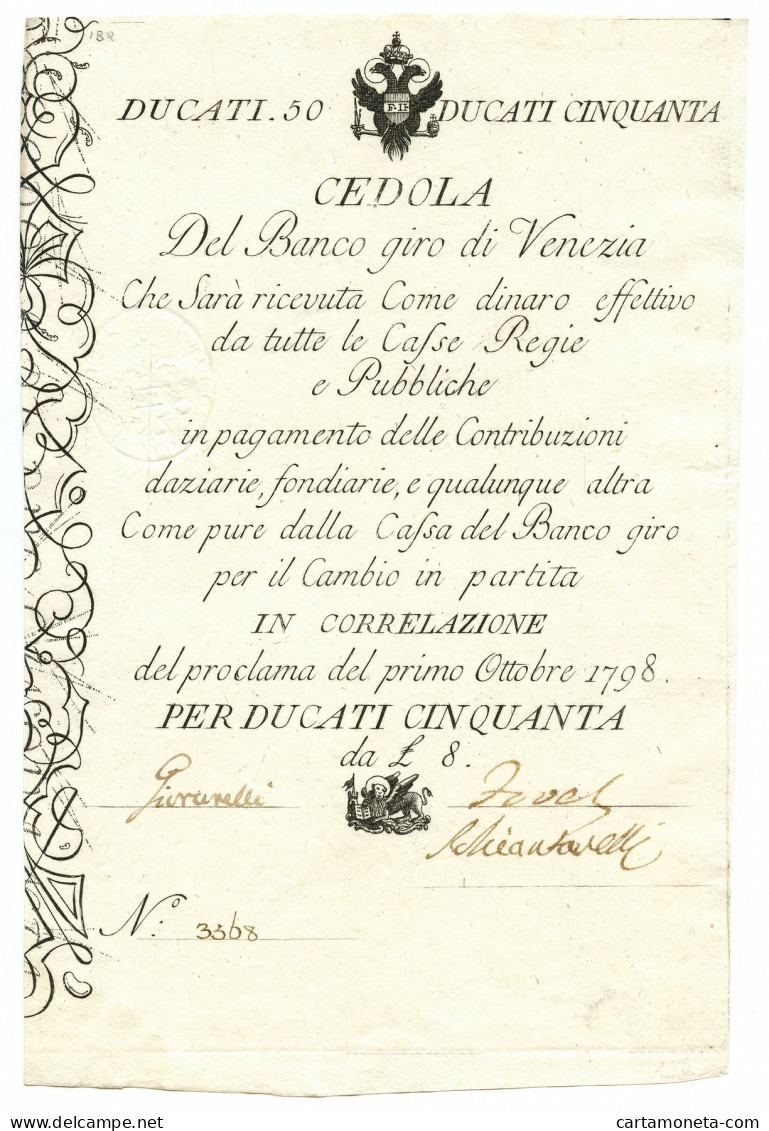 DUCATI. 50 DUCATI CINQUANTA
F. II
CEDOLA
Del Banco giro di Venezia
Che Sarà ricevuta Come dinaro effettivo
da tutte le Caſse Regie
e Pubbliche
in pagamento delle Contribuzioni
daziarie, fondiarie, e qualunque altra
Come pure dalla Caſsa del Banco giro
per il Cambio in partita
IN CORRELAZIONE
del proclama del primo Ottobre 1798.
PER DUCATI CINQUANTA
da £ 8.
N.o 3368
cartamoneta-com.delcampe.net